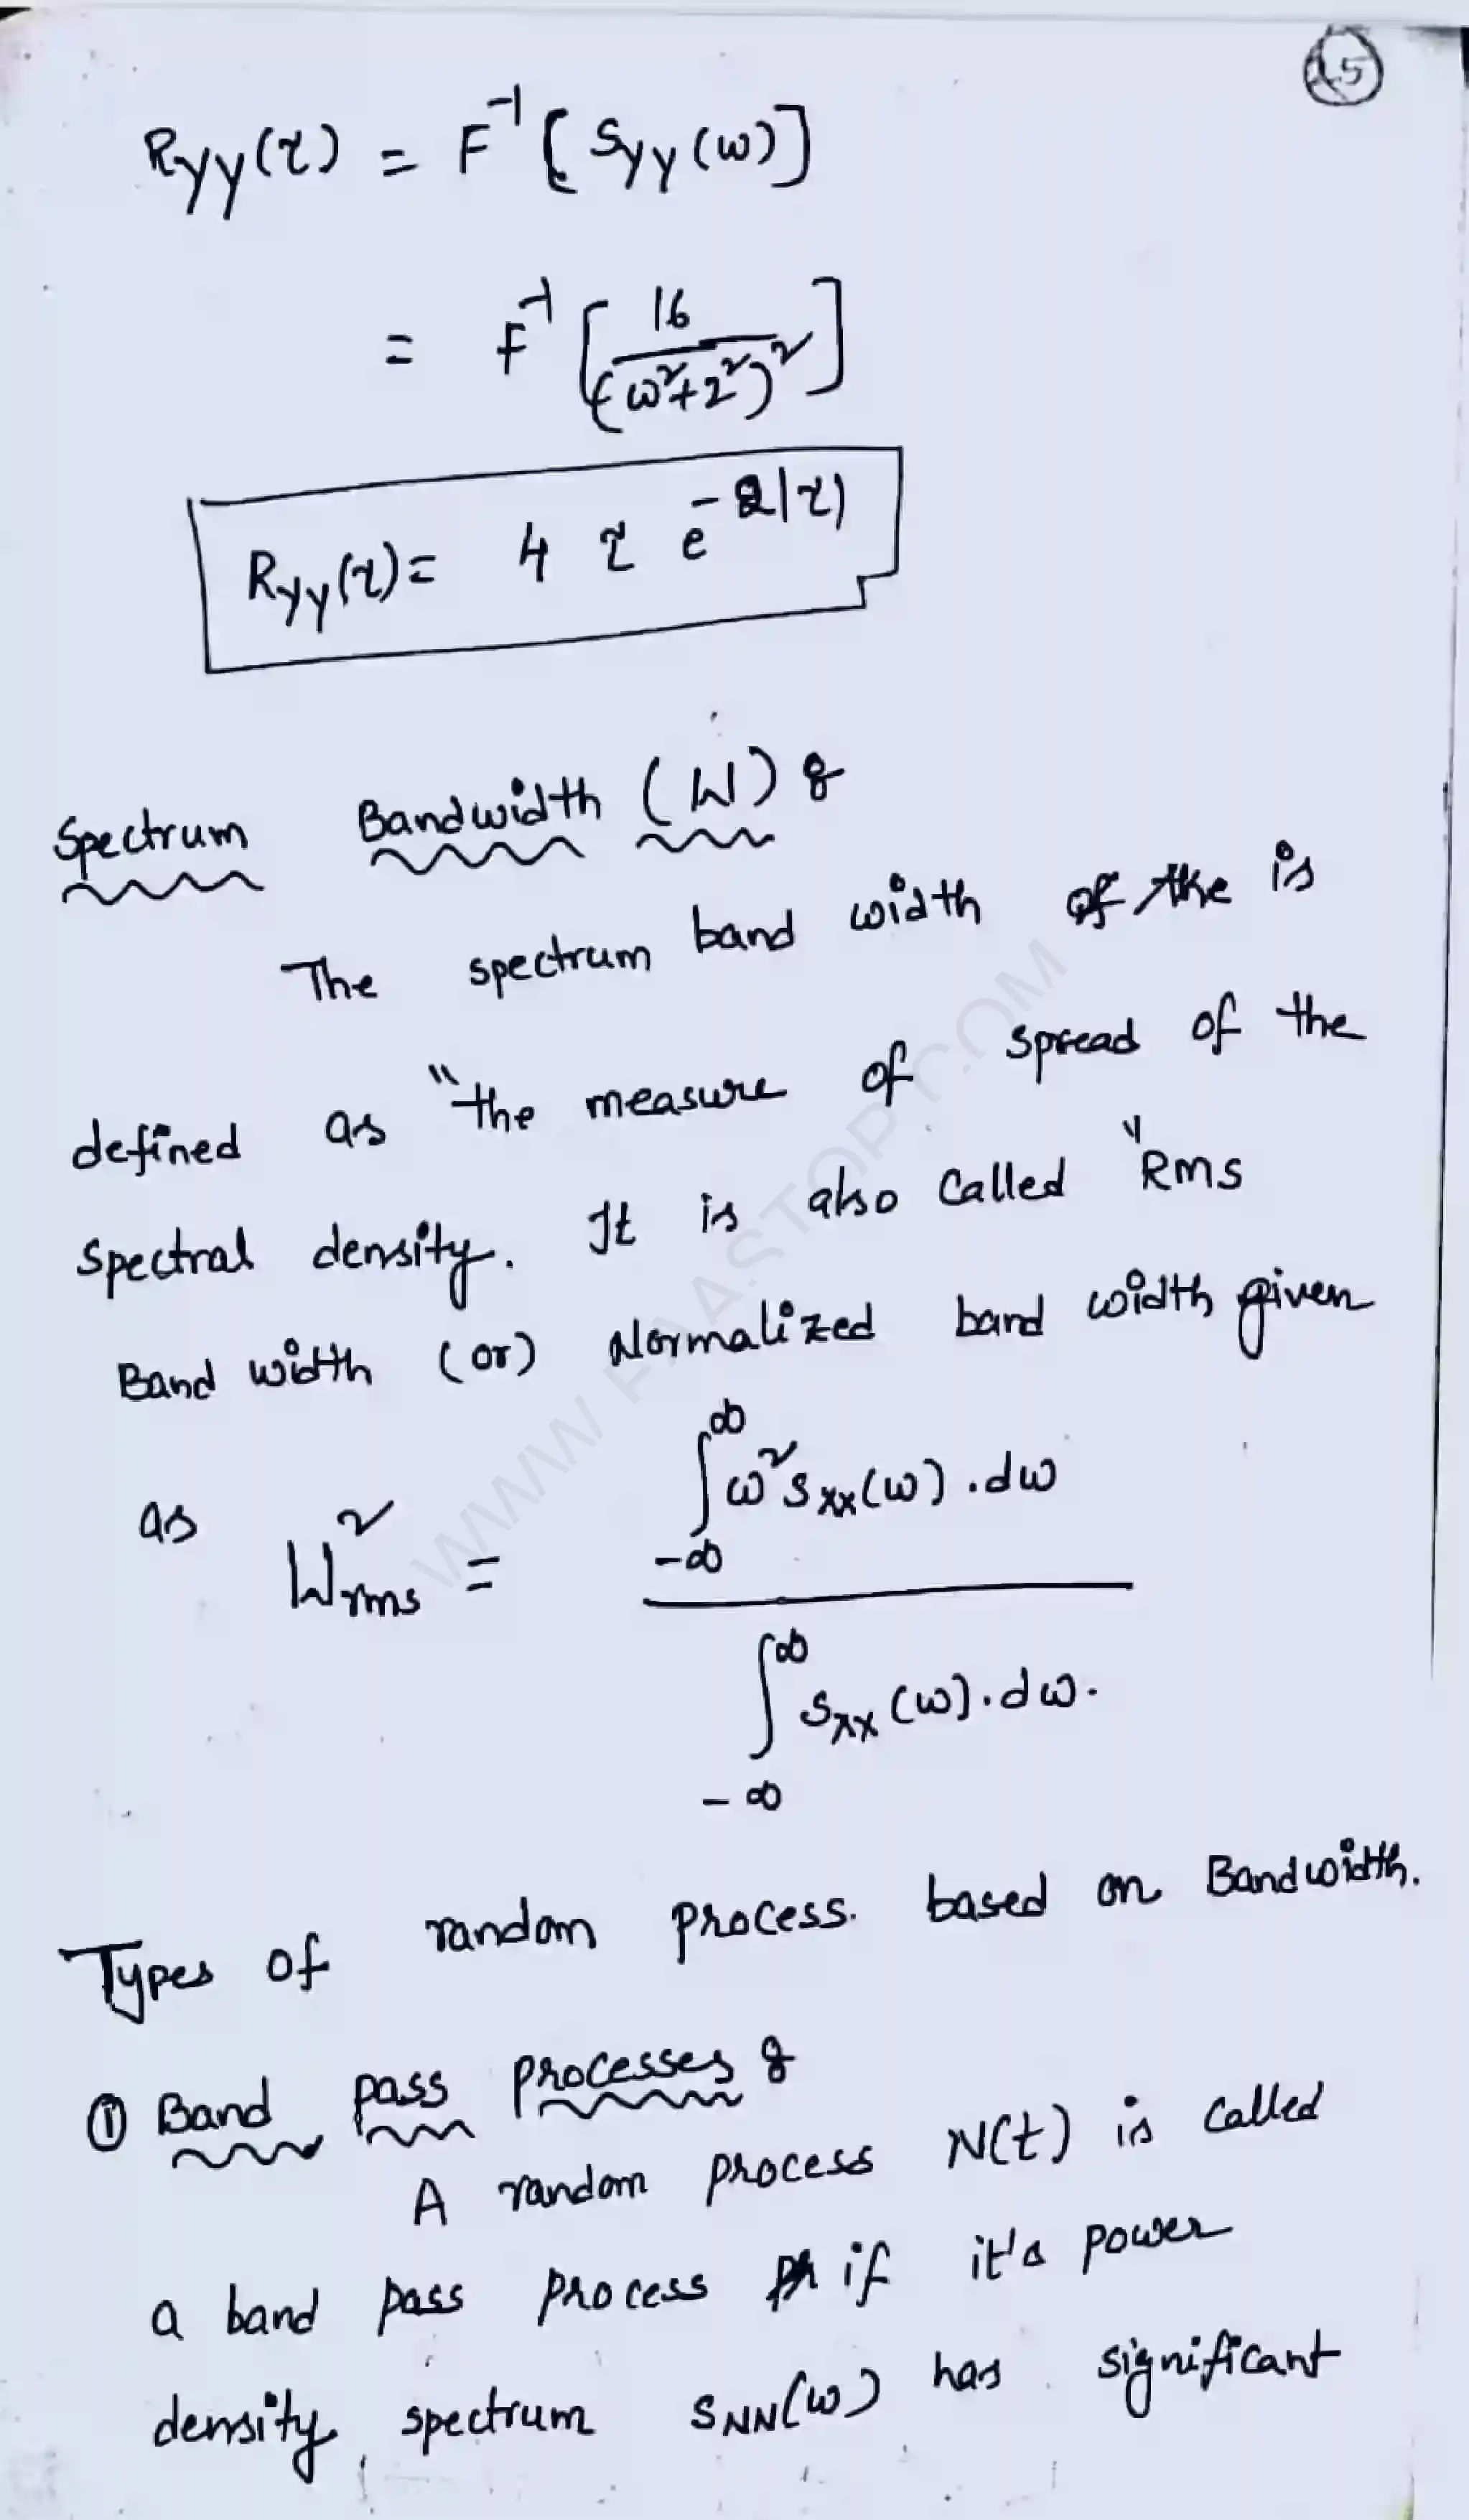 15
Ryy(τ) = F⁻¹[Syy(ω)]
= F⁻¹[16/(ω²+2²)²]
Ryy(τ) = 4 τ e^-2|τ|
Spectrum Bandwidth (W) :
The spectrum band width of the is
defined as "the measure of spread of the
spectral density. It is also called "Rms
Band width (or) Normalized band width given
as W²rms = ∫^∞_-∞ ω² Sxx(ω).dω / ∫^∞_-∞ Sxx(ω).dω.
Types of random process. based on Bandwidth.
① Band pass processes :
A random process N(t) is called
a band pass process if it's power
density spectrum SNN(ω) has significant
WWW.FAASTOP.COM